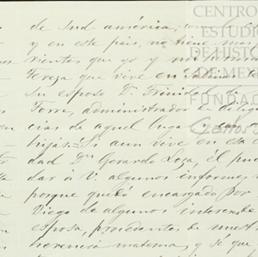 de Sud américa, 
y en este pais, no tiene mas
vientes que yo y mi
Teresa que vive en
Su esposo D. Trinidad
Torre, administrador
cias de aquel lugar
hijas. Si aun vive en esa
dad Dn Gerardo Loza, el pue
dar á V. algunos informes,
porque quedó encargado por
Diego de algunos intereses
esposa, procedentes de nuest
herencia materna, y se que
CENTRO
ESTUDIO
DE HISTOR
DE MEX
FUNDAC
Carlos S